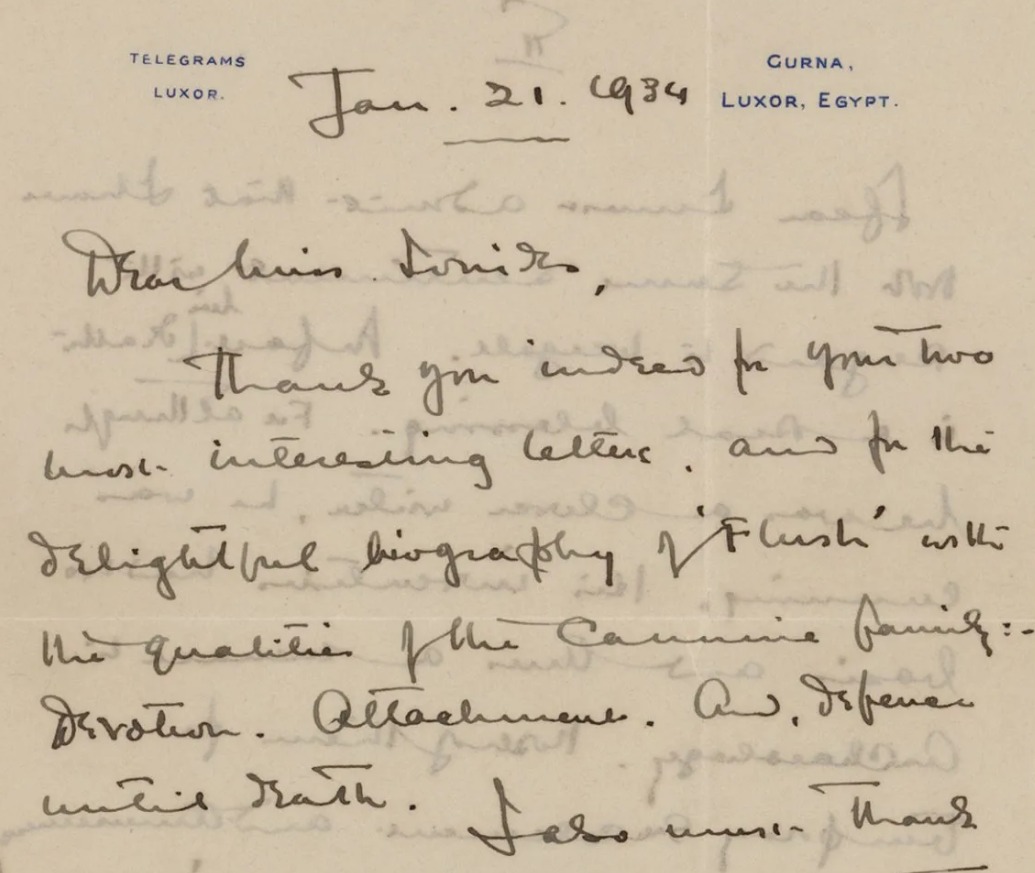 TELEGRAMS
LUXOR.
GURNA,
LUXOR, EGYPT.
Jan. 21. 1934
Dear Miss Ionides,
Thank you indeed for your two
most interesting letters, and for the
delightful biography of 'Flush' with
the qualities of the Cannine family:-
Devotion. Attachment. And, defence
until death. I also must thank